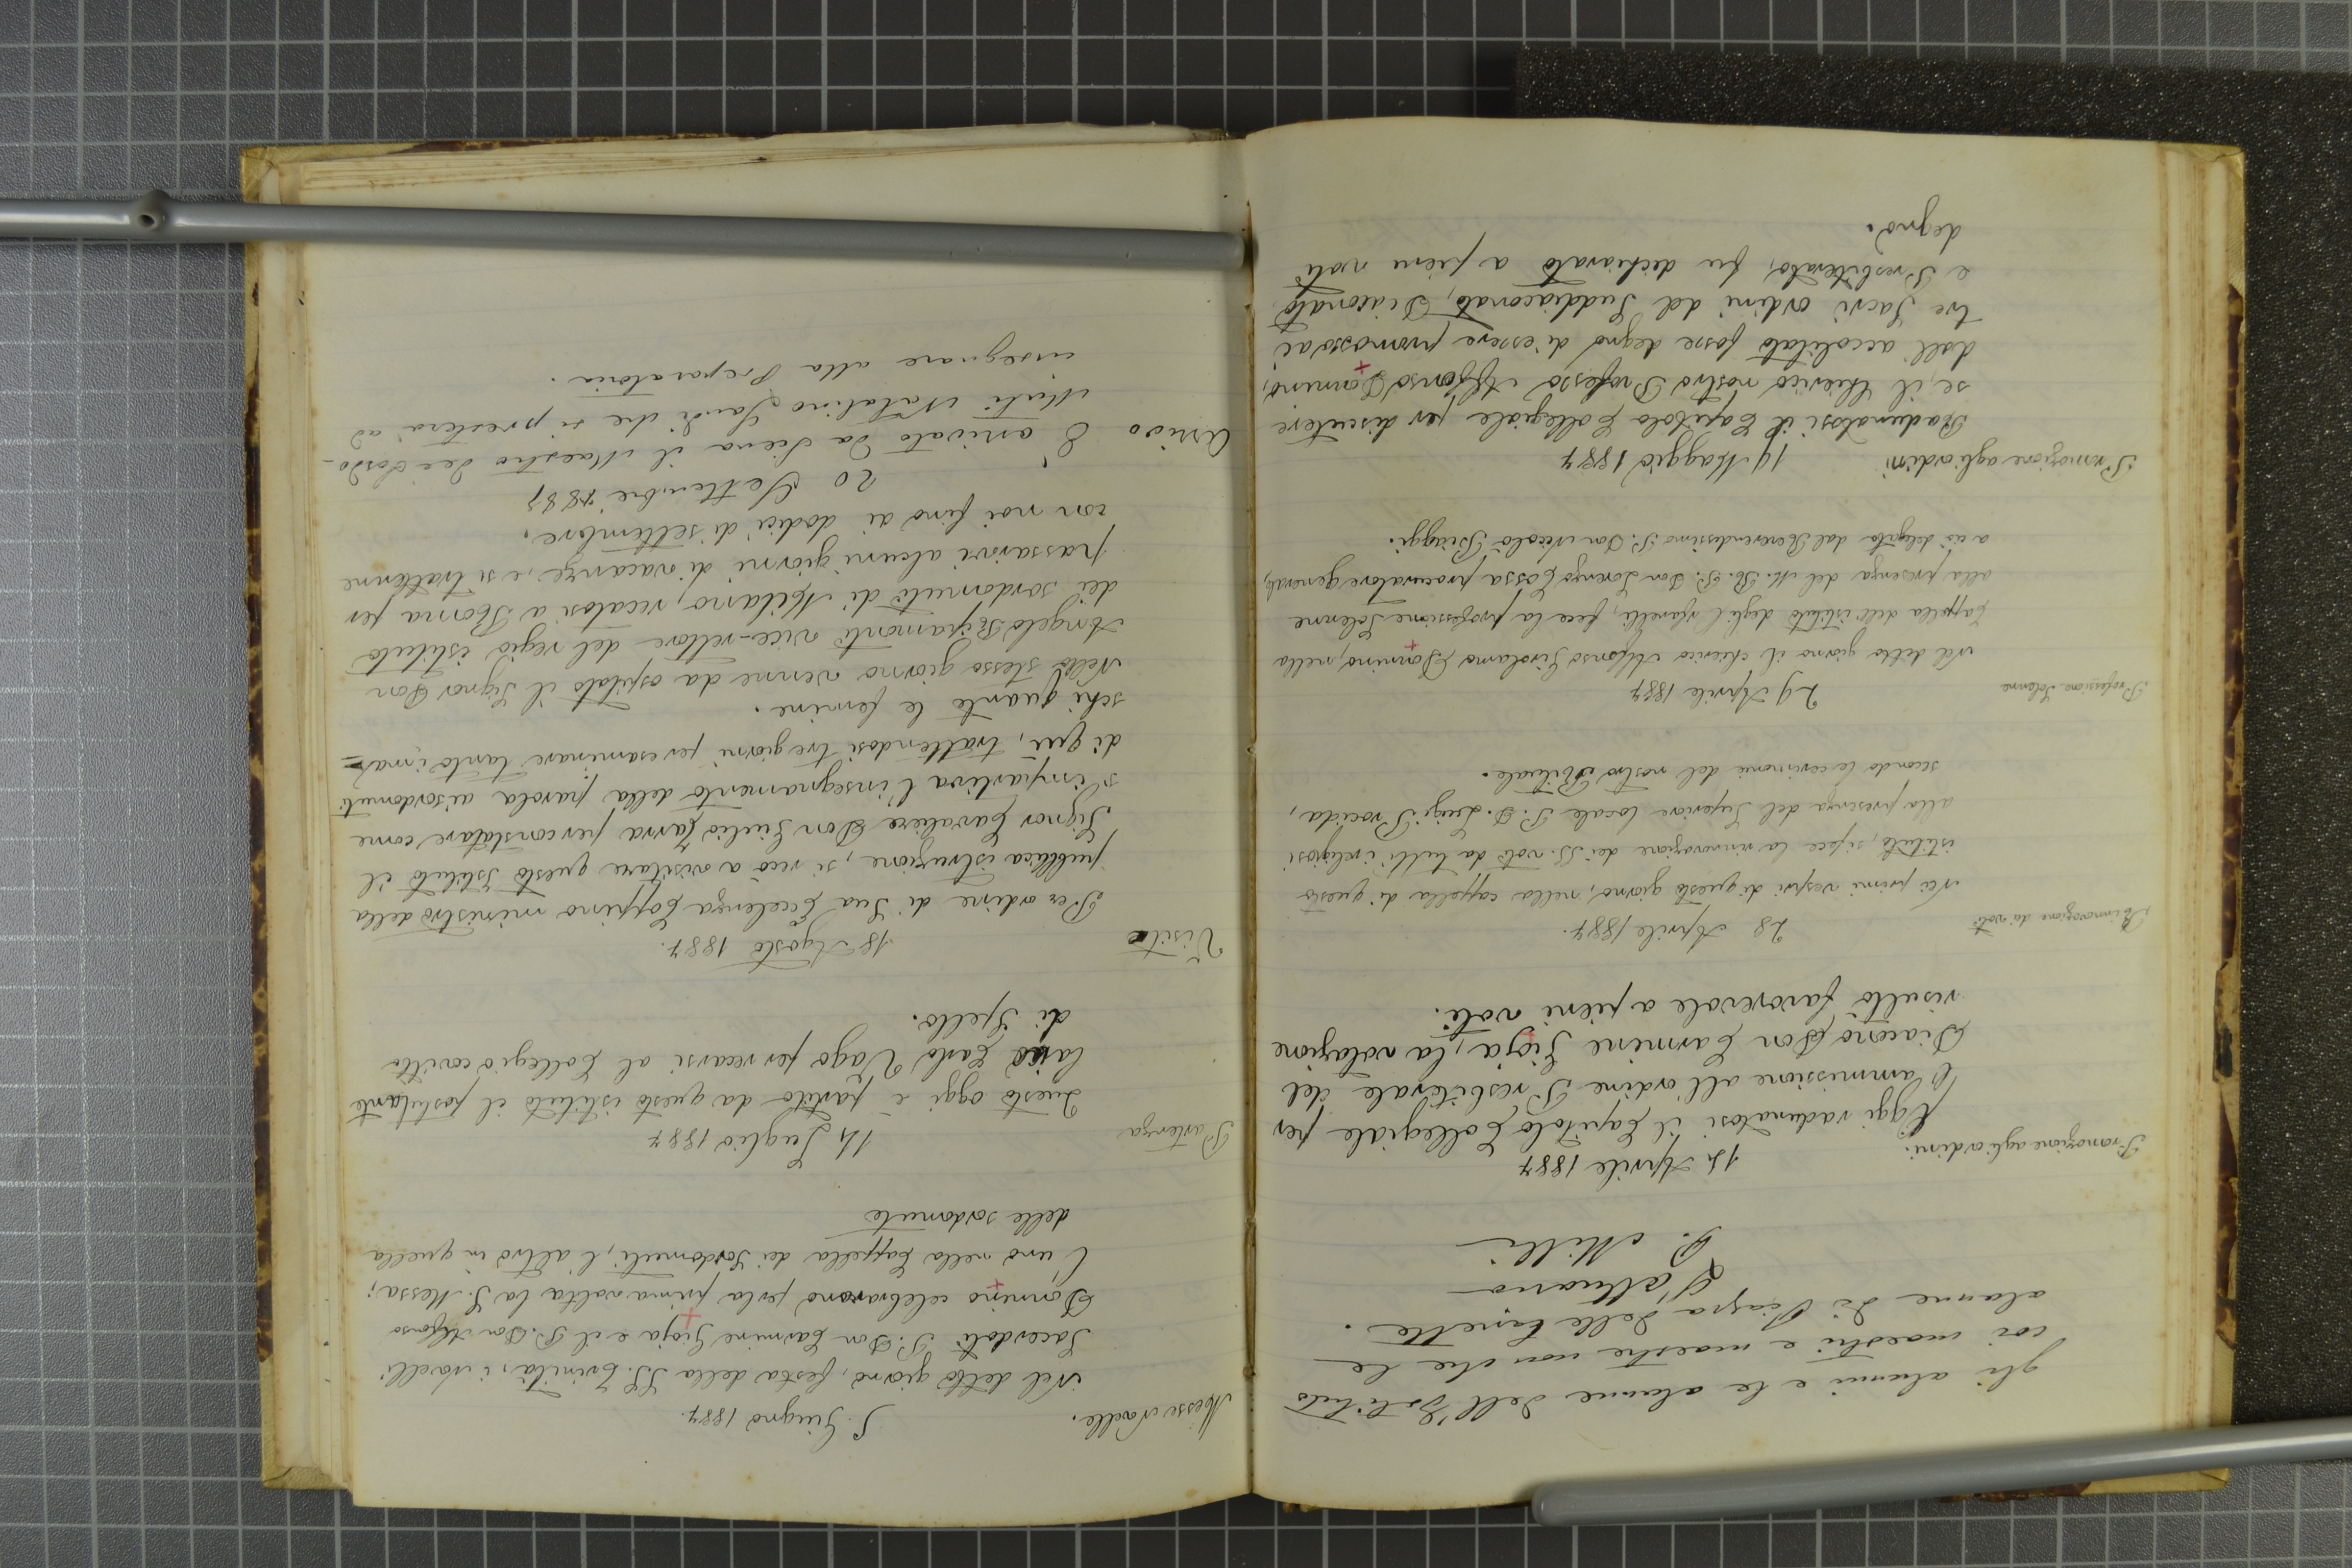 gli alunni e le alunne dell'Istituto
coi maestri e maestre non che le
alunne di Piazza delle Zirette.
L'attuario
P. Milli
Promozione agli ordini.
14 Aprile 1887
Oggi radunatosi il Capitolo Collegiale per
l'ammissione all'ordine Presbiterale del
Diacono Don Carmine Gioja, la votazione
risultò favorevole a pieni voti.
Rinnovazione dei voti
28 Aprile 1887.
Nei primi vespri di questo giorno, nella cappella di questo
istituto, si fece la rinnovazione dei SS. voti da tutti i religiosi
alla presenza del Superiore locale P. D. Luigi Procida,
secondo le cerimonie del nostro Rituale.
Professione Solenne
29 Aprile 1887
Nel detto giorno il chierico Alfonso Girolamo Dannino, nella
Cappella dell'istituto degli, fece la professione Solenne
alla presenza del M. R. P. Don Lorenzo Cossa procuratore generale,
a ciò delegato dal Reverendissimo P. Don Nicolò Biaggi.
Promozione agli ordini
19 Maggio 1887
Radunatosi il Capitolo Collegiale per discutere
se, il Chierico nostro Professo Alfonso Dannino,
dall'accolitato fosse degno di essere promosso ai
tre Sacri ordini del Suddiaconato, Diaconato
e Presbiterato, fu dichiarato a pieni voti
degno.
Messe Novelle.
5 Giugno 1887.
Nel detto giorno, festa della SS. Trinità, i Novelli
Sacerdoti P. Don Carmine Gioja e il P. Don Alfonso
Dannino celebrarono per la prima volta la S. Messa;
l'uno nella Cappella dei Sordomuti, l'altro in quella
delle sordomute
Partenza
14 Luglio 1887
Questo oggi è partito da questo istituto il postulante
laico Carlo Vago per recarsi al Collegio convitto
di Spello.
Visita
18 Agosto 1887.
Per ordine di Sua Eccelenza Coppino ministro della
pubblica istruzione, si recò a visitare questo Istituto il
Signor Cavaliere Don Giulio Tarra per constatare come
s'impartiva l'insegnamento della parola ai sordomuti
di qui, trattendosi tre giorni per esaminare tanto i mas=
schi quanto le femine.
Nello stesso giorno venne da ospitato il Signor Don
Angelo Rigamonti vice-rettore del regio istituto
dei sordomuti di Milano, recatosi a Roma per
passarvi alcuni giorni di vacanze, e si trattenne
con noi fino ai dodici di settembre.
20 Settembre 1887
Arrivo
È arrivato da Siena il Maestro dei Sordo-
Muti Natalino Sandi che si presterà ad
insegnare alla Preparatoria.